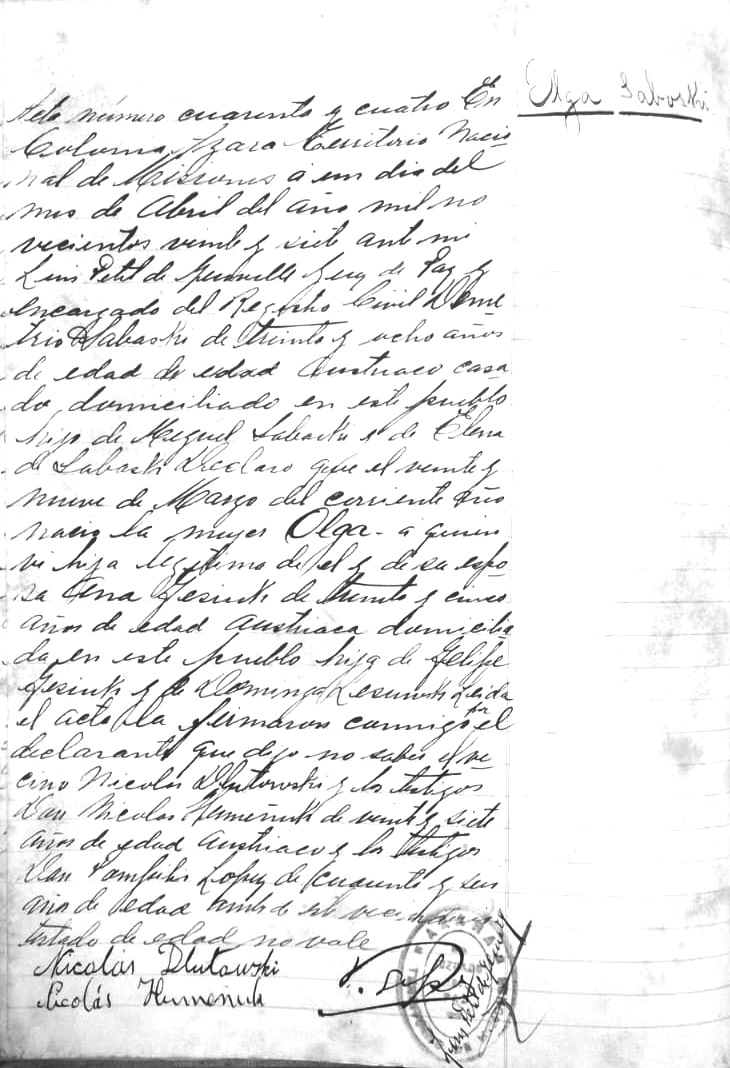 Olga Saboski
Acta número cuarenta y cuatro En
Colonia Azara Territorio Nacio
nal de Misiones á un dia del
mes de Abril del año mil no
vecientos veinte y siete ante mi
Luis Petit de Juez de Paz y
encargado del Registro Civil Deme
trio Sabaski de treinta y ocho años
de edad de edad Austriaco casa
do, domiciliado en este pueblo
hijo de Miguel Sabaski y de Elena
de Sabaski Declaro que el veinte y
nueve de Marzo del corriente año
nacio la mujer Olga - a quien
vi hija legitima de el y de su espo
sa Ana de treinta y cinco
años de edad austriaca domicilia
da en este pueblo hija de Felipe
y de Dominga Leida
el acta la firmaron conmigo por el
declarante que dijo no saber el ve
cino Nicolas Dlutowski y los testigos
Don Nicolas Humeñuk de veinte y siete
años de edad austriaco y los testigos
Don Pamfilio Lopez de cuarenta y seis
años de edad
testado de edad no vale
Nicolás Dlutowski
Nicolás Humeñuk